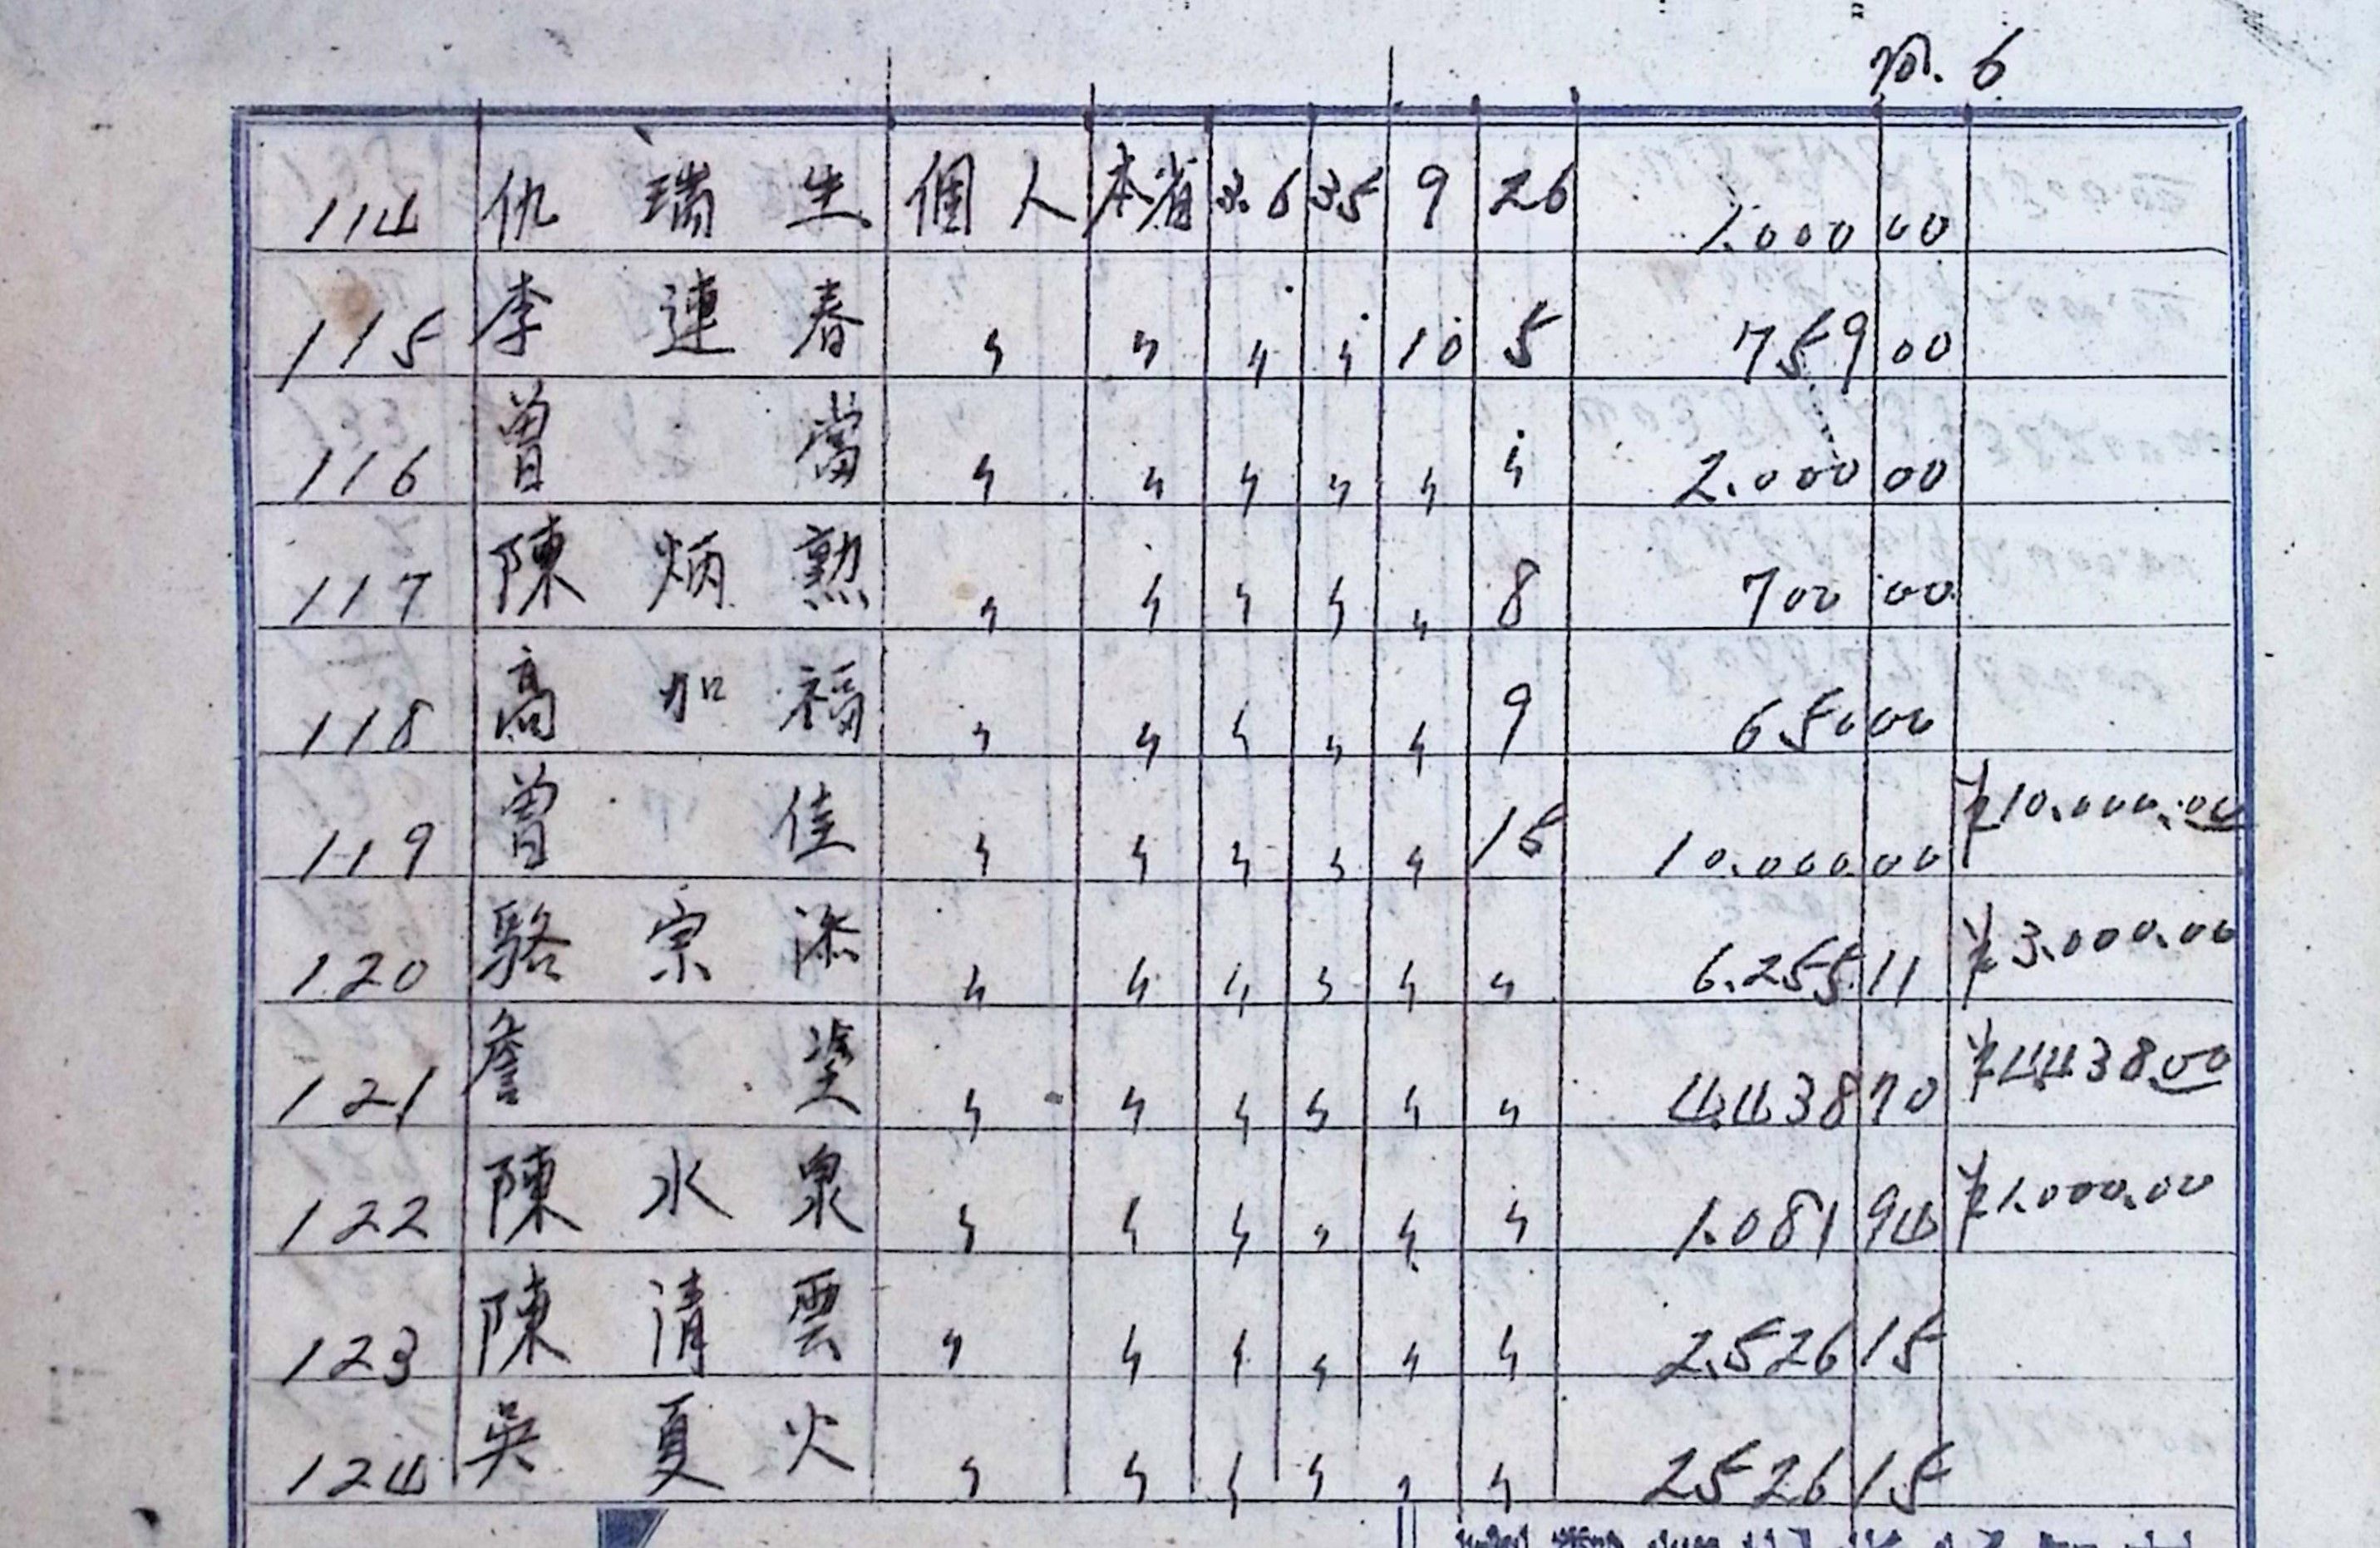 no. 6
114 仇瑞生 個人 本省 3.6 35 9 26 1.000 00
115 李連春 〃 〃 〃 〃 10 5 759 00
116 曾當 〃 〃 〃 〃 〃 〃 2.000 00
117 陳炳勲 〃 〃 〃 〃 〃 8 700 00
118 高加福 〃 〃 〃 〃 〃 9 650 00
119 曾佳 〃 〃 〃 〃 〃 15 10.000 00 ¥10.000.00
120 駱宗添 〃 〃 〃 〃 〃 〃 6.255 11 ¥3.000.00
121 詹塗 〃 〃 〃 〃 〃 〃 4.438 70 ¥4438.00
122 陳水泉 〃 〃 〃 〃 〃 〃 1.081 94 ¥1.000.00
123 陳清雲 〃 〃 〃 〃 〃 〃 2.526 15
124 吳夏火 〃 〃 〃 〃 〃 〃 2526 15